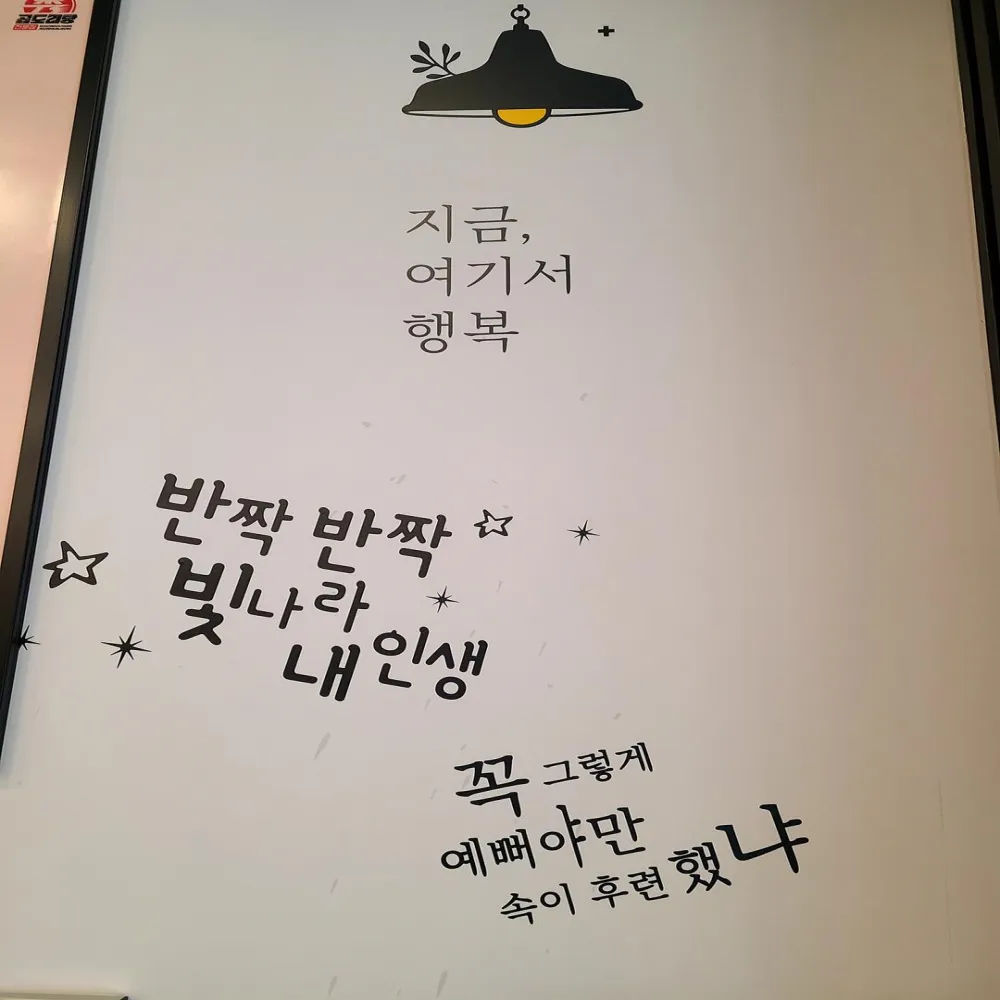 지금,
여기서
행복
반짝 반짝
빛나라
내 인생
꼭 그렇게
예뻐야만
속이 후련했냐